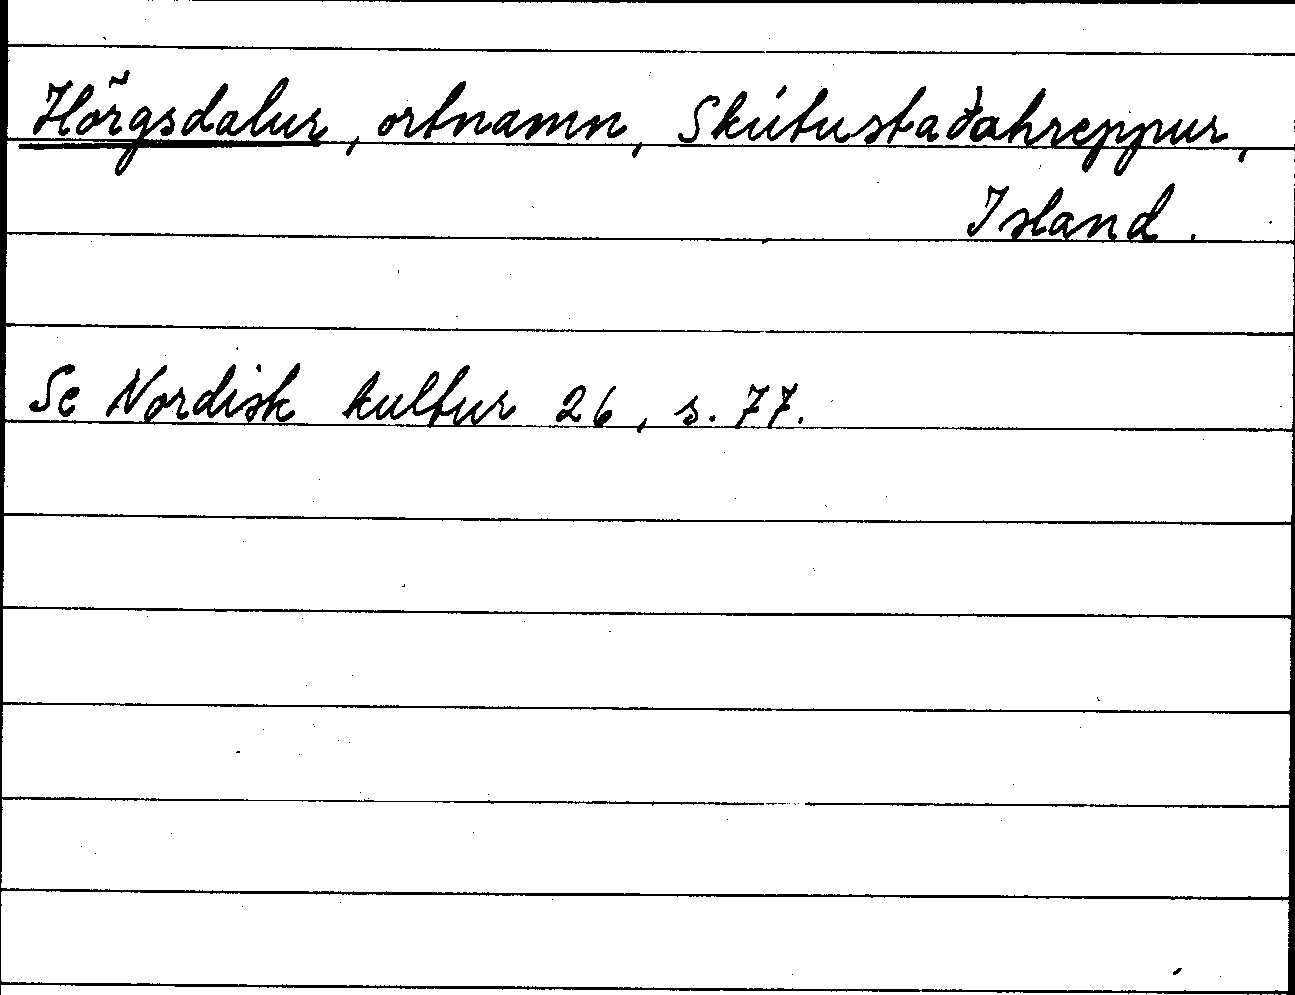 Hörgsdalur, ortnamn, Skútustaðahreppur,
Island.
Se Nordisk kultur 26, s. 77.